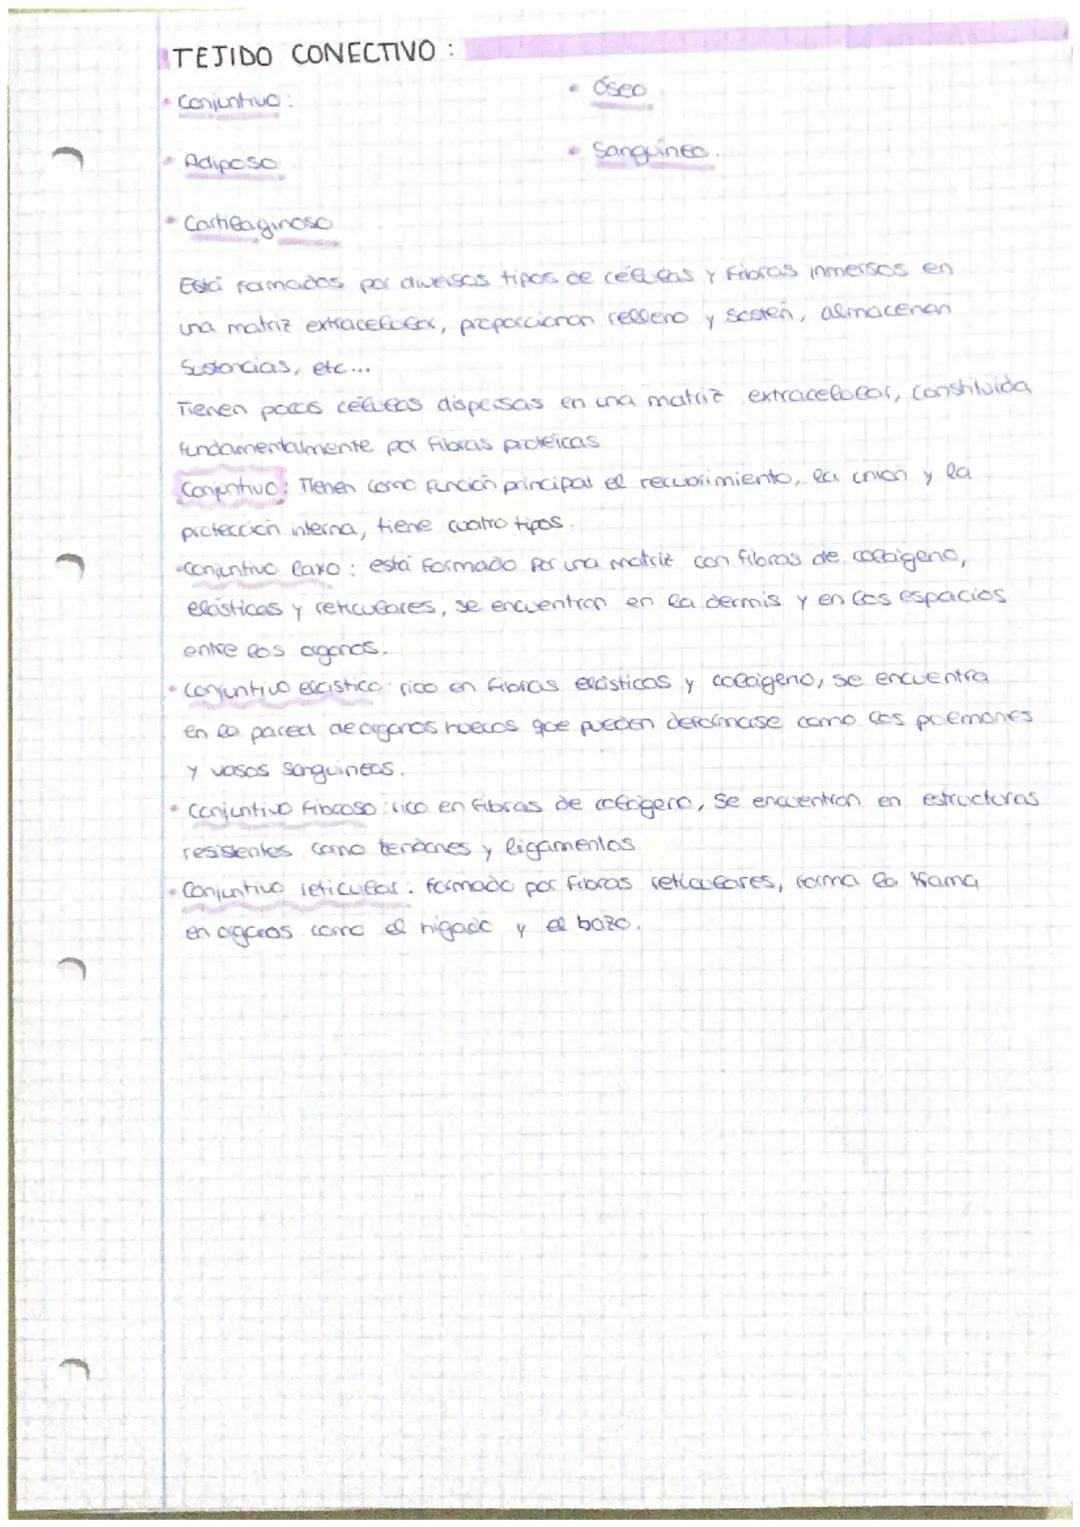 TEJIDO CONECTIVO :
• Conjuntivo :
• Óseo
• Adiposo
• Sanguíneo.
• Cartilaginoso
Está formados por diversos tipos de células y fibras inmersos en
una matriz extracelular, proporcionan relleno y sostén, almacenan
sustancias, etc...
Tienen pocas células dispersas en una matriz extracelular, constituida
fundamentalmente por fibras proteicas
Conjuntivo: Tienen como función principal el recubrimiento, la unión y la
protección interna, tiene cuatro tipos.
•Conjuntivo laxo : está formado por una matriz con fibras de colágeno,
elásticas y reticulares, se encuentran en la dermis y en los espacios
entre los organos.
• Conjuntivo elástico: rico en fibras elásticas y colágeno, se encuentra
en la pared de organos huecos que pueden deformarse como los pulmones
y vasos sanguineos.
• Conjuntivo fibroso: rico en fibras de colágeno, se encuentran en estructuras
resistentes como tendones y ligamentos
• Conjuntivo reticular : formado por fibras reticulares, forma la trama
en organos como el hígado y el bazo.